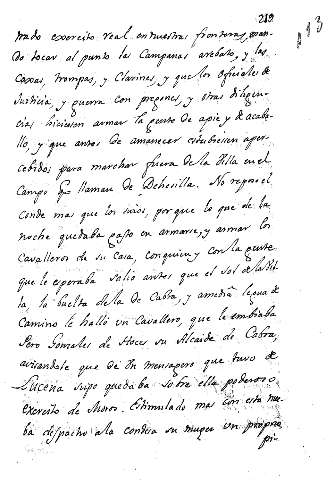 219
113
trado exercito real en nuestras fronteras, man-
do tocar al punto las Campanas arebato, y las
Caxas, trompas, y Clarines, y que los oficiales de
Justicia, y guerra con pregones, y otras diligen-
cias hiciesen armar la gente de apie y de acaba-
llo, y que antes de amanecer estubiesen aper-
cebidos para marchar fuera de la Villa en el
Campo q llaman de Dehesilla. No reposo el
Conde mas que los suios, porque lo que de la
noche quedaba pasto en armarse, y armar los
Cavalleros de su Casa, con quien y con la gente
que le esperaba salió antes que el Sol de la Vi-
lla, la buelta de la de Cabra, y a media legua de
Camino le halló un Cavallero, que le embiaba
Pero Gonzales de Hoces su Alcaide de Cabra,
avisandole que de Un mensagero que tuvo de
Lucena supo quedaba sobre ella poderoso
exercito de Moros. Estimulado mas con esta nue-
ba despacho a la Condesa su muger un proprio